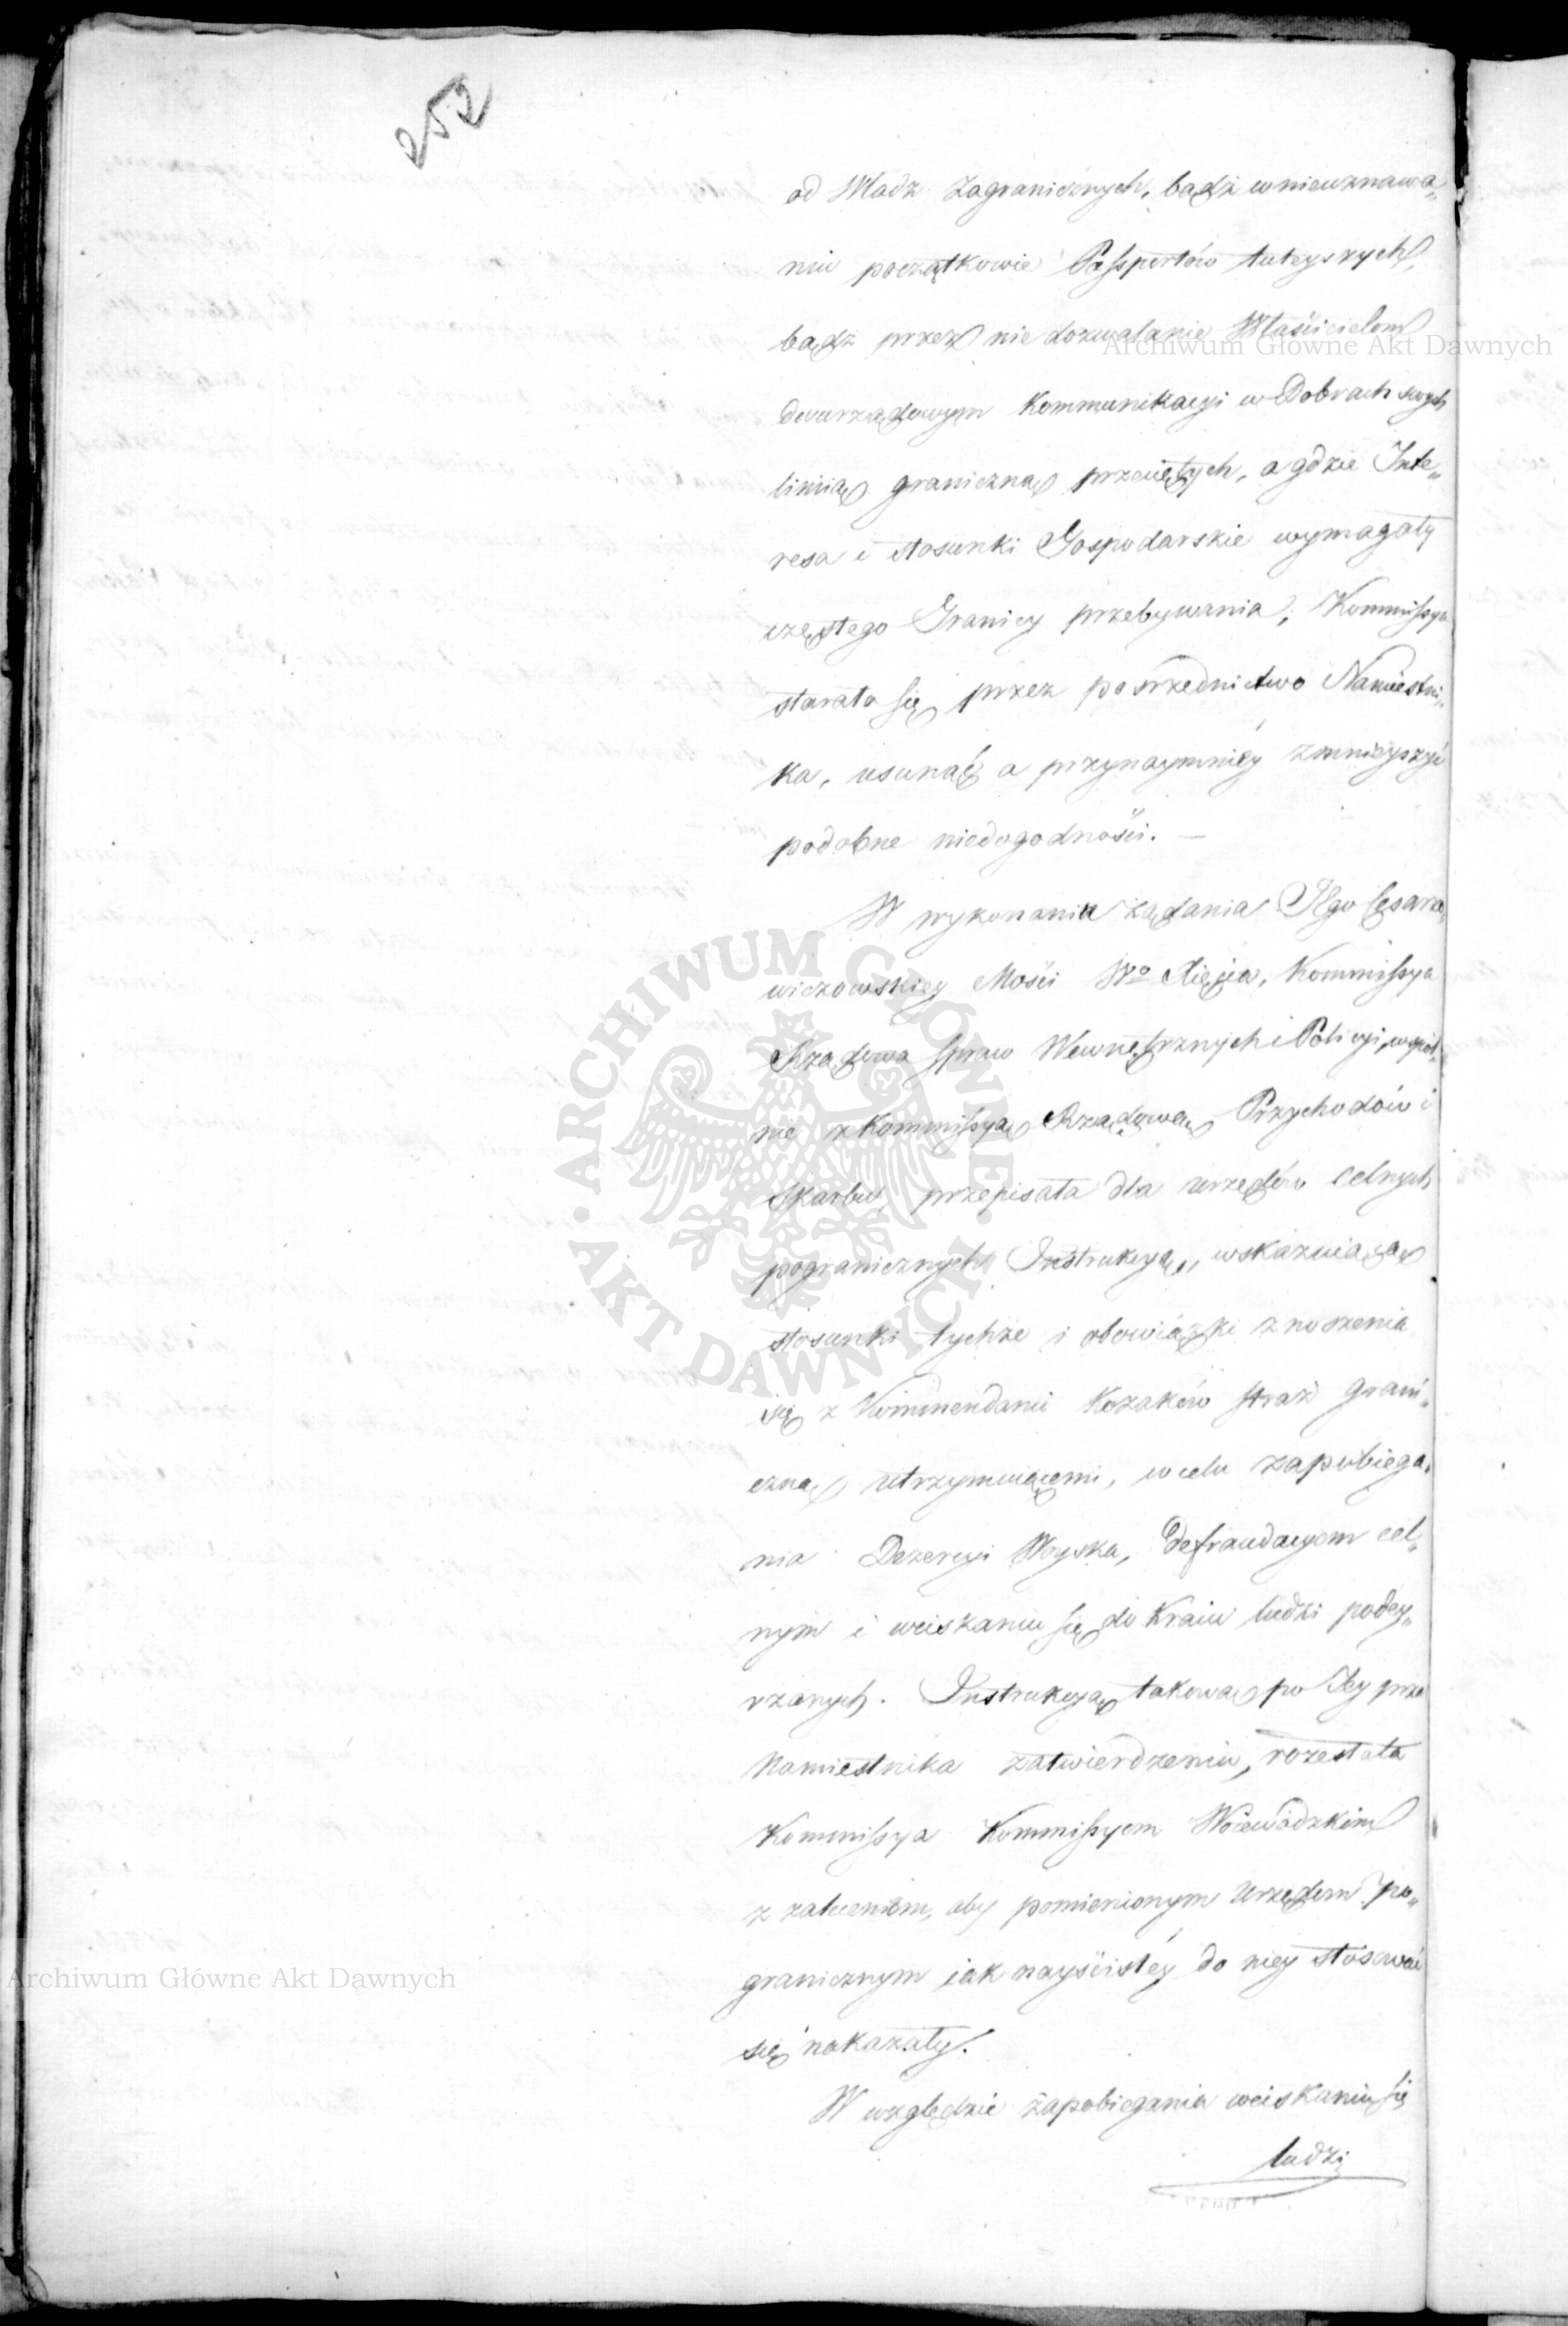 252
od Władz Zagranicznych, bądź w nieuznawa„
niu początkowie Passportów tuteyszych,
bądź przez nie dozwalanie Właścicielom
dwurządowym Kommunikacyi w Dobrach swych
liniią graniczną przeciętych, a gdzie Inte„
resa i stosunki Gospodarskie wymagały
częstego Granicy przebywania; Kommissya
starała się przez posrzednictwo Namiestni„
ka, usunąć a przynaymniéy zmnieyszyć
podobne niedogodności. —
W wykonaniu żądania JEgo Cesarze„
wiczowskiey Mości Wo Xięcia, Kommissya
Rządowa Spraw Wewnętrznych i Policyi, wspól„
nie z Kommissyą Rządową Przychodów i
Skarbu, przepisała dla urzędów celnych
pogranicznych Instrukcyą, wskazuiącą
stosunki tychże i obowiązki znoszenia
się z Kommendami Kozaków straż grani„
czną utrzymuiącemi, w celu zapobiega„
nia Dezercyi Woyska, defraudacyom cel„
nym i wciskaniu się do Kraiu ludzi podey„
rzanych. Instrukcyą takową po Jey przez
Namiestnika zatwierdzeniu, rozesłała
Kommissya Kommissyom Woiewódzkim
z zaleceniem, aby pomienionym Urzędom po„
granicznym iak nayściśléy do niey stosować
się nakazały.
W względzie zapobiegania wciskaniu się
ludzi
Archiwum Główne Akt Dawnych
Archiwum Główne Akt Dawnych
ARCHIWUM GŁÓWNE AKT DAWNYCH